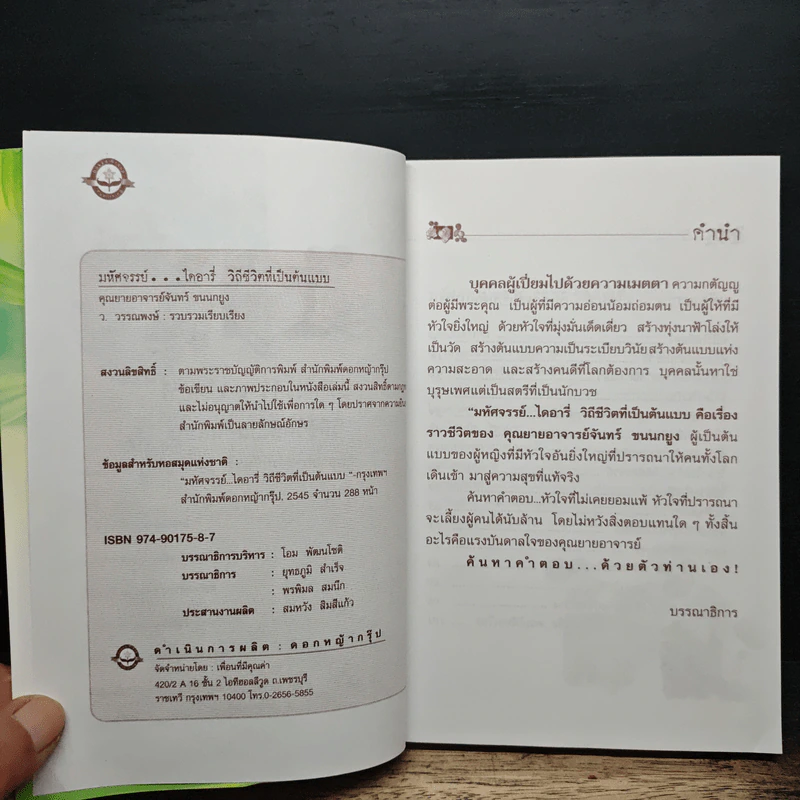 มหัศจรรย์...ไดอารี่ วิถีชีวิตที่เป็นต้นแบบ
คุณยายอาจารย์จันทร์ ขนนกยูง
ว. วรรณพงษ์ : รวบรวมเรียบเรียง
สงวนลิขสิทธิ์ : ตามพระราชบัญญัติการพิมพ์ สำนักพิมพ์ดอกหญ้ากรุ๊ป
ข้อเขียน และภาพประกอบในหนังสือเล่มนี้ สงวนสิทธิ์ตามกฎ
และไม่อนุญาตให้นำไปใช้เพื่อการใด ๆ โดยปราศจากความยิน
สำนักพิมพ์เป็นลายลักษณ์อักษร
ข้อมูลสำหรับหอสมุดแห่งชาติ :
"มหัศจรรย์...ไดอารี่ วิถีชีวิตที่เป็นต้นแบบ "-กรุงเทพฯ
สำนักพิมพ์ดอกหญ้ากรุ๊ป, 2545 จำนวน 288 หน้า
ISBN 974-90175-8-7
บรรณาธิการบริหาร : โอม พัฒนโชติ
บรรณาธิการ : ยุทธภูมิ สำเร็จ
: พรพิมล สมนึก
ประสานงานผลิต : สมหวัง สิมสีแก้ว
ดำเนินการผลิต : ดอกหญ้ากรุ๊ป
จัดจำหน่ายโดย : เพื่อนที่มีคุณค่า
420/2 A 16 ชั้น 2 ไอทีฮอลลีวูด ถ.เพชรบุรี
ราชเทวี กรุงเทพฯ 10400 โทร.0-2656-5855
คำนำ
บุคคลผู้เปี่ยมไปด้วยความเมตตา ความกตัญญู
ต่อผู้มีพระคุณ เป็นผู้ที่มีความอ่อนน้อมถ่อมตน เป็นผู้ให้ที่มี
หัวใจยิ่งใหญ่ ด้วยหัวใจที่มุ่งมั่นเด็ดเดี่ยว สร้างทุ่งนาฟ้าโล่งให้
เป็นวัด สร้างต้นแบบความเป็นระเบียบวินัย สร้างต้นแบบแห่ง
ความสะอาด และสร้างคนดีที่โลกต้องการ บุคคลนั้นหาใช่
บุรุษเพศแต่เป็นสตรีที่เป็นนักบวช
"มหัศจรรย์...ไดอารี่ วิถีชีวิตที่เป็นต้นแบบ คือเรื่อง
ราวชีวิตของ คุณยายอาจารย์จันทร์ ขนนกยูง ผู้เป็นต้น
แบบของผู้หญิงที่มีหัวใจอันยิ่งใหญ่ที่ปรารถนาให้คนทั้งโลก
เดินเข้า มาสู่ความสุขที่แท้จริง
ค้นหาคำตอบ...หัวใจที่ไม่เคยยอมแพ้ หัวใจที่ปรารถนา
จะเลี้ยงผู้คนได้นับล้าน โดยไม่หวังสิ่งตอบแทนใด ๆ ทั้งสิ้น
อะไรคือแรงบันดาลใจของคุณยายอาจารย์
ค้นหาคำตอบ...ด้วยตัวท่านเอง!
บรรณาธิการ